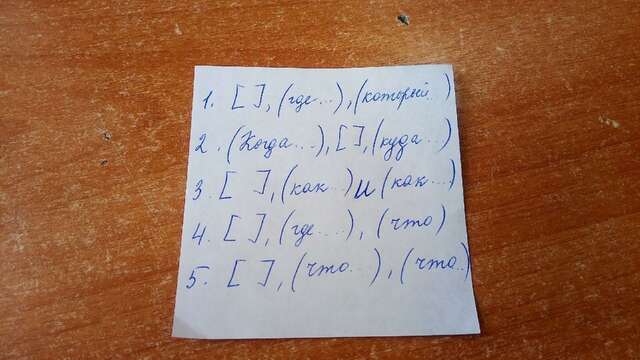 1. [ ], (где...), (который..)
2. (Когда....), [ ], (куда...)
3. [ ], (как...) и (как...)
4. [ ], (где.....), (что)
5. [ ], (что...), (что..)